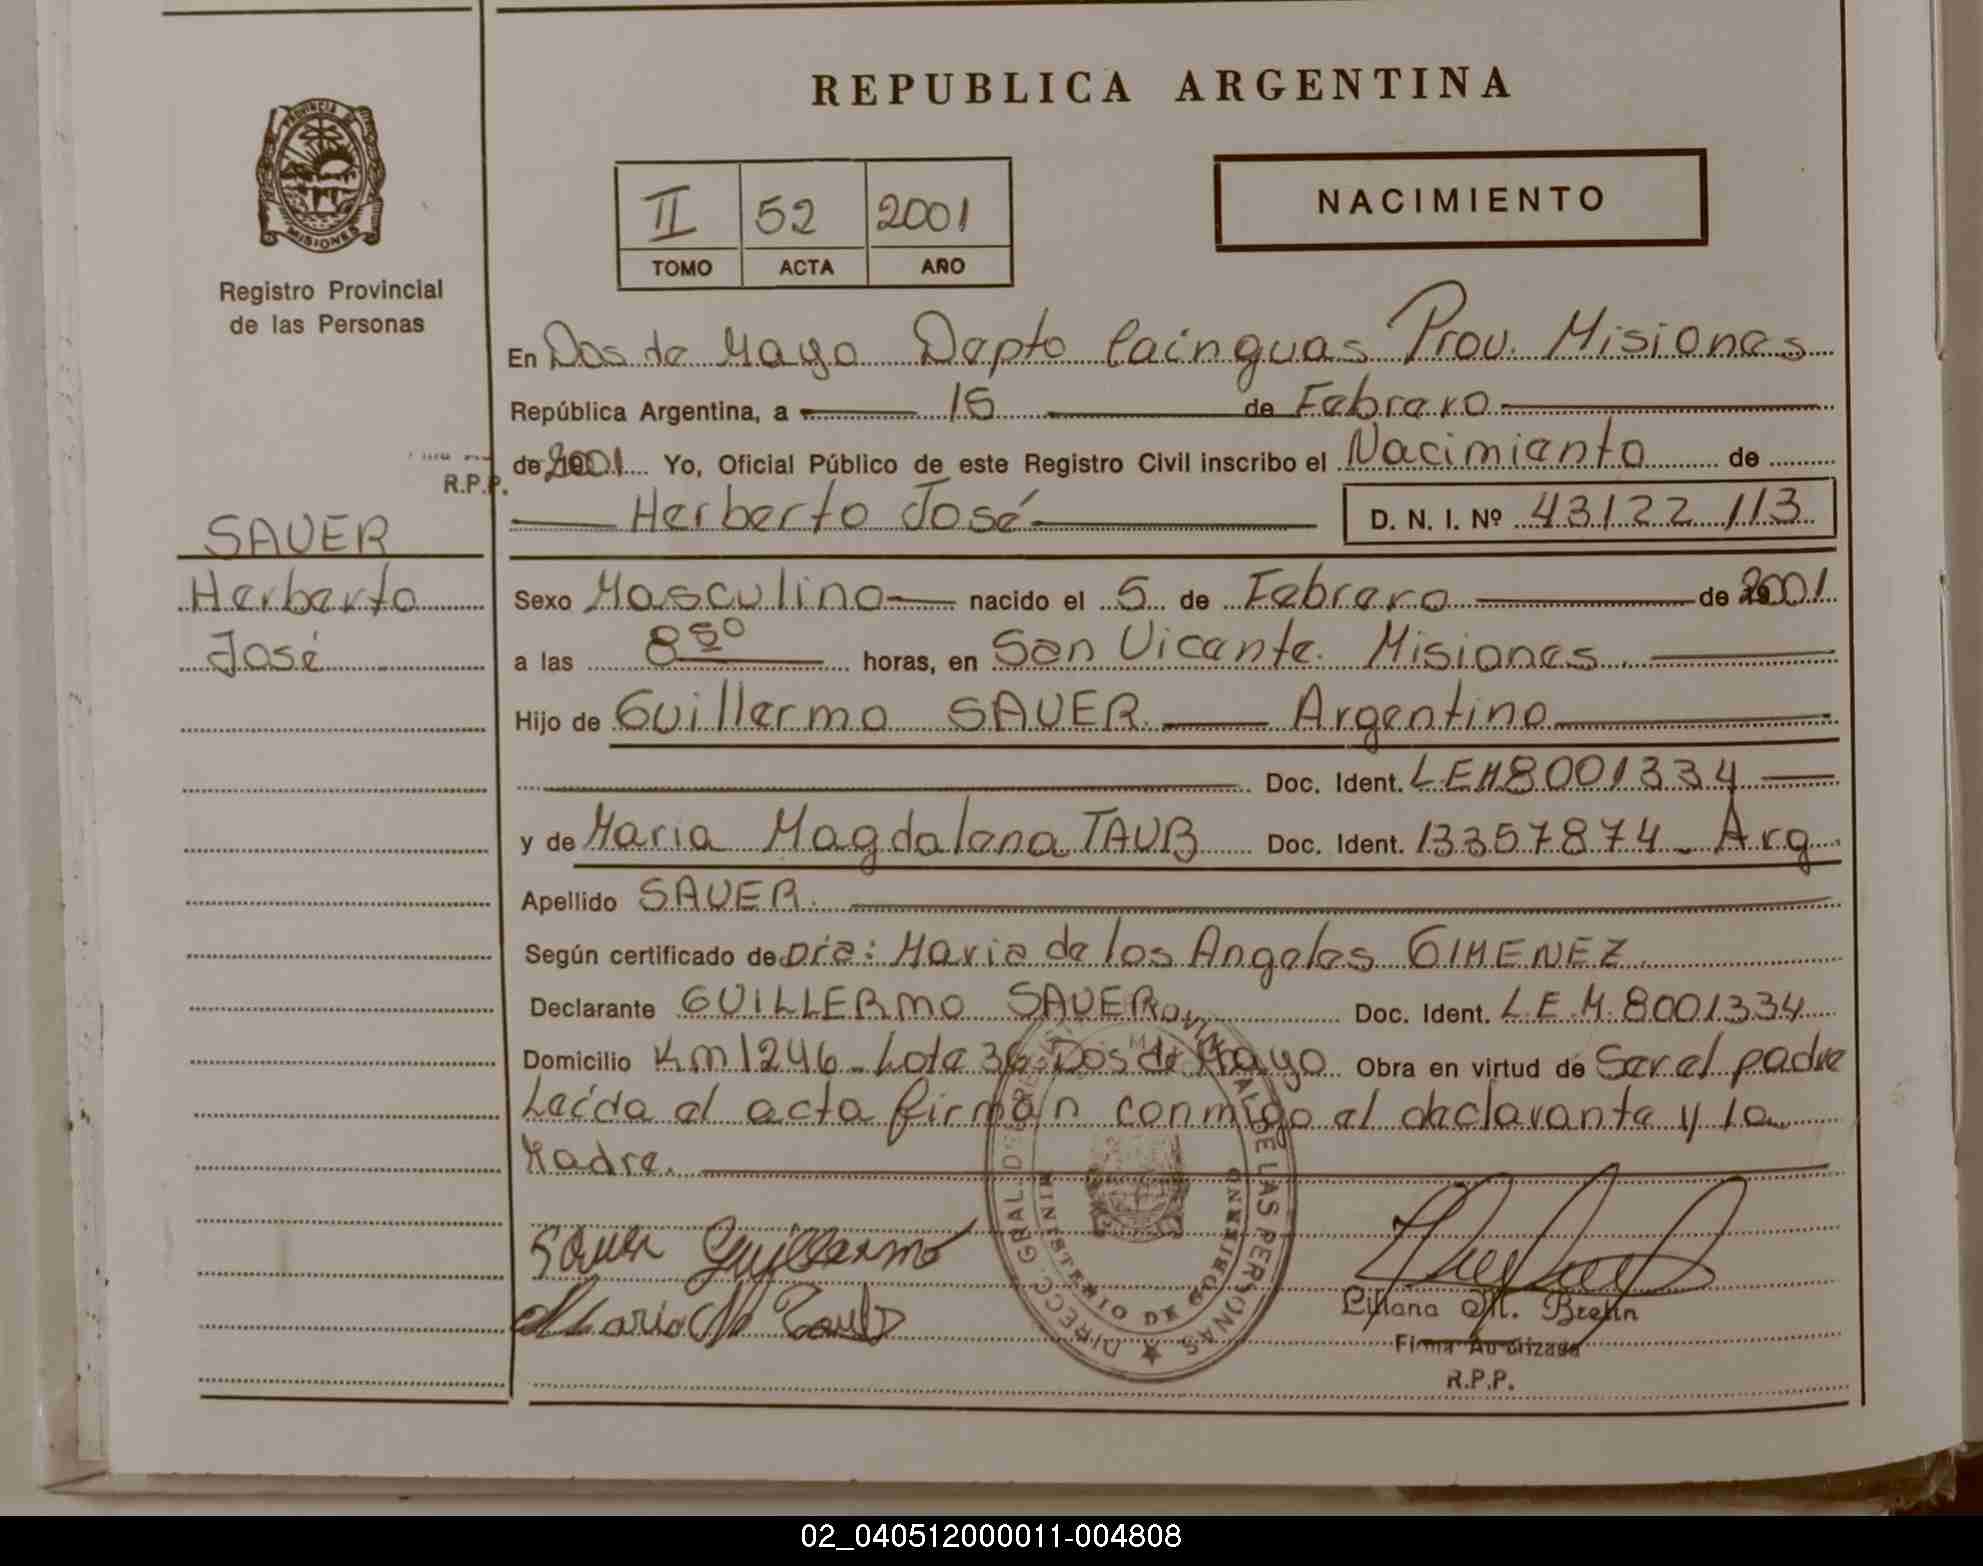 REPUBLICA ARGENTINA
PROVINCIA DE
MISIONES
Registro Provincial
de las Personas
II 52 2001
TOMO ACTA AÑO
NACIMIENTO
En Dos de Mayo Depto Cainguas Prov. Misiones
República Argentina, a 15 de Febrero
de 2001 Yo, Oficial Público de este Registro Civil inscribo el Nacimiento de
R.P.P.
Herberto José D. N. I. Nº 43122113
SAUER
Herberto
José
Sexo Masculino nacido el 5 de Febrero de 2001
a las 8 50 horas, en San Vicente. Misiones
Hijo de Guillermo SAUER Argentino
Doc. Ident. LEM8001334
y de Maria Magdalena TAUB Doc. Ident. 13357874 - Arg.
Apellido SAUER.
Según certificado de Dra: Maria de los Angeles GIMENEZ
Declarante GUILLERMO SAUER Doc. Ident. L.E.M. 8001334
Domicilio KM 1246 - Lote 36 Dos de Mayo Obra en virtud de Ser el padre
Leída el acta firman conmigo el declarante y la
Madre.
Sauer Guillermo
Maria M Taub
DIRECC. GRAL. DE REGISTRO PROVINCIAL DE LAS PERSONAS
MINISTERIO DE GOBIERNO
Liliana M. Brehn
Firma Autorizada
R.P.P.
02_040512000011-004808